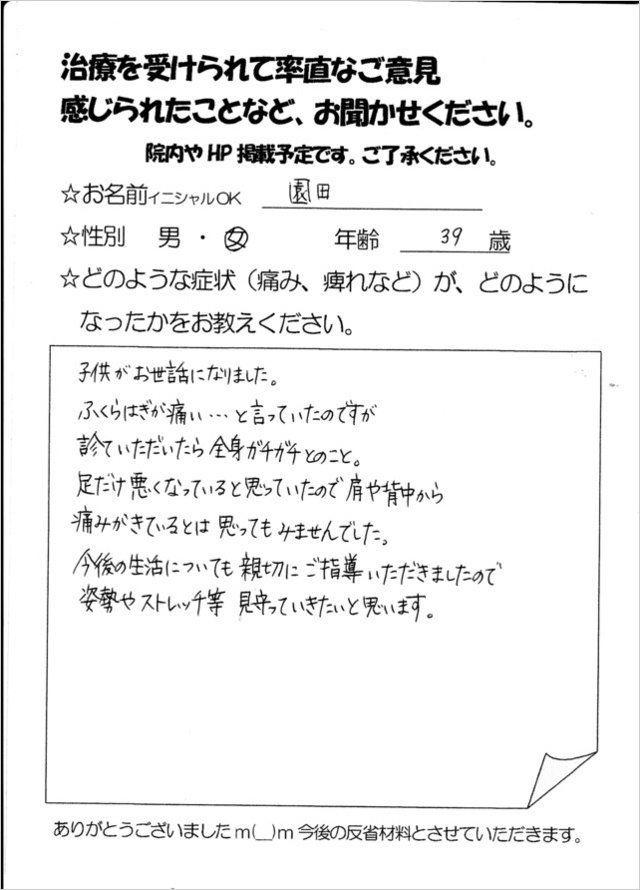 治療を受けられて率直なご意見
感じられたことなど、お聞かせください。
院内や HP 掲載予定です。ご了承ください。
☆お名前イニシャルOK 園田
☆性別 男 ・ 女 年齢 39 歳
☆どのような症状（痛み、痺れなど）が、どのように
なったかをお教えください。
子供がお世話になりました。
ふくらはぎが痛い…と言っていたのですが
診ていただいたら全身ガチガチとのこと。
足だけ悪くなっていると思っていたので肩や背中から
痛みがきているとは思ってもみませんでした。
今後の生活についても親切にご指導いただきましたので
姿勢やストレッチ等 見守っていきたいと思います。
ありがとうございましたm(__)m今後の反省材料とさせていただきます。